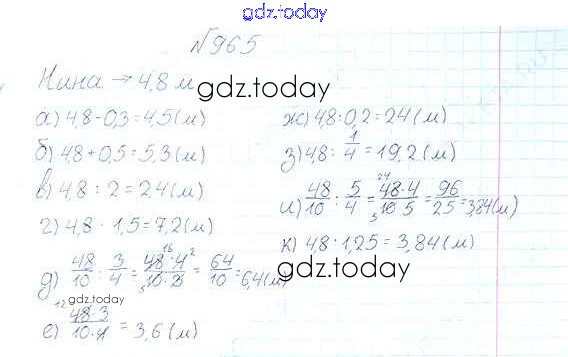 gdz.today
№965
Нина → 4,8 м
gdz.today
а) 4,8-0,3=4,5(м)
б) 4,8+0,5=5,3(м)
в) 4,8 : 2=2,4(м)
г) 4,8 · 1,5=7,2(м)
д) 48/10 : 3/4 = 48·4/10·3 = 64/10 = 6,4(м)
gdz.today
е) 48·3/10·4 = 3,6(м)
ж) 4,8:0,2=24(м)
з) 4,8 : 1/4 = 19,2(м)
и) 48/10 : 5/4 = 48·4/10·5 = 96/25 = 3,84(м)
к) 4,8 : 1,25 = 3,84(м)
gdz.today